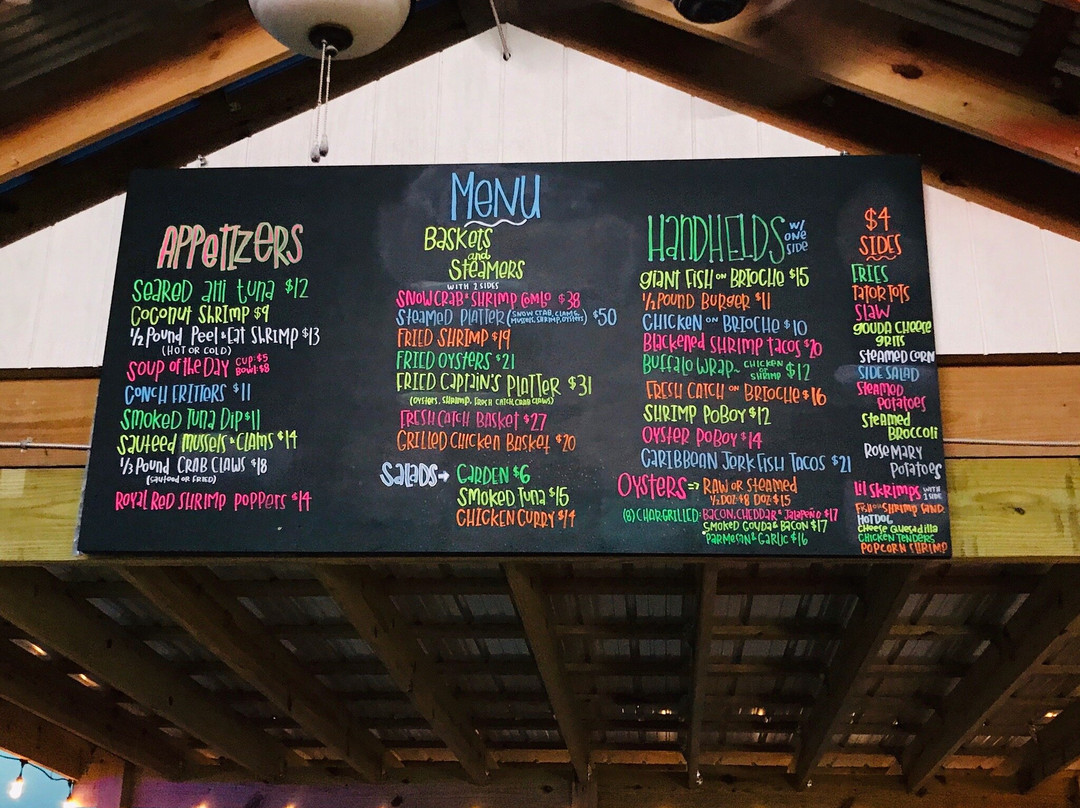 MENU
APPETIZERS
SEARED AHI TUNA $12
COCONUT SHRIMP $9
1/2 POUND PEEL & EAT SHRIMP $13
(HOT OR COLD)
SOUP OF THE DAY CUP: $5
BOWL: $8
CONCH FRITTERS $11
SMOKED TUNA DIP $11
SAUTEED MUSSELS & CLAMS $14
1/3 POUND CRAB CLAWS $18
(SAUTEED OR FRIED)
ROYAL RED SHRIMP POPPERS $14
BASKETS
and
STEAMERS
WITH 2 SIDES
SNOWCRAB & SHRIMP COMBO $38
STEAMED PLATTER (SNOW CRAB, CLAMS, $50
MUSSEL, SHRIMP, OYSTERS)
FRIED SHRIMP $19
FRIED OYSTERS $21
FRIED CAPTAIN'S PLATTER $31
(OYSTERS, SHRIMP, FRESH CATCH, CRAB CLAWS)
FRESH CATCH BASKET $27
GRILLED CHICKEN BASKET $20
SALADS → GARDEN $6
SMOKED TUNA $15
CHICKEN CURRY $14
HANDHELDS W/
ONE
SIDE
GIANT FISH ON BRIOCHE $15
1/2 POUND BURGER $11
CHICKEN ON BRIOCHE $10
BLACKENED SHRIMP TACOS $20
BUFFALO WRAP~ CHICKEN
OR
SHRIMP $12
FRESH CATCH ON BRIOCHE $16
SHRIMP POBOY $12
OYSTER POBOY $14
CARIBBEAN JERK FISH TACOS $21
OYSTERS => RAW OR STEAMED
1/2 DOZ $8 DOZ $15
(8) CHARGRILLED: BACON, CHEDDAR & JALAPEÑO $17
SMOKED GOUDA & BACON $17
PARMESAN & GARLIC $16
$4
SIDES
FRIES
TATOR TOTS
SLAW
GOUDA CHEESE
GRITS
STEAMED CORN
SIDE SALAD
STEAMED
POTATOES
STEAMED
BROCCOLI
ROSEMARY
POTATOES
LIL SKRIMPS WITH
1 SIDE
FISH OR SHRIMP SAND.
HOTDOG
CHEESE QUESADILLA
CHICKEN TENDERS
POPCORN SHRIMP